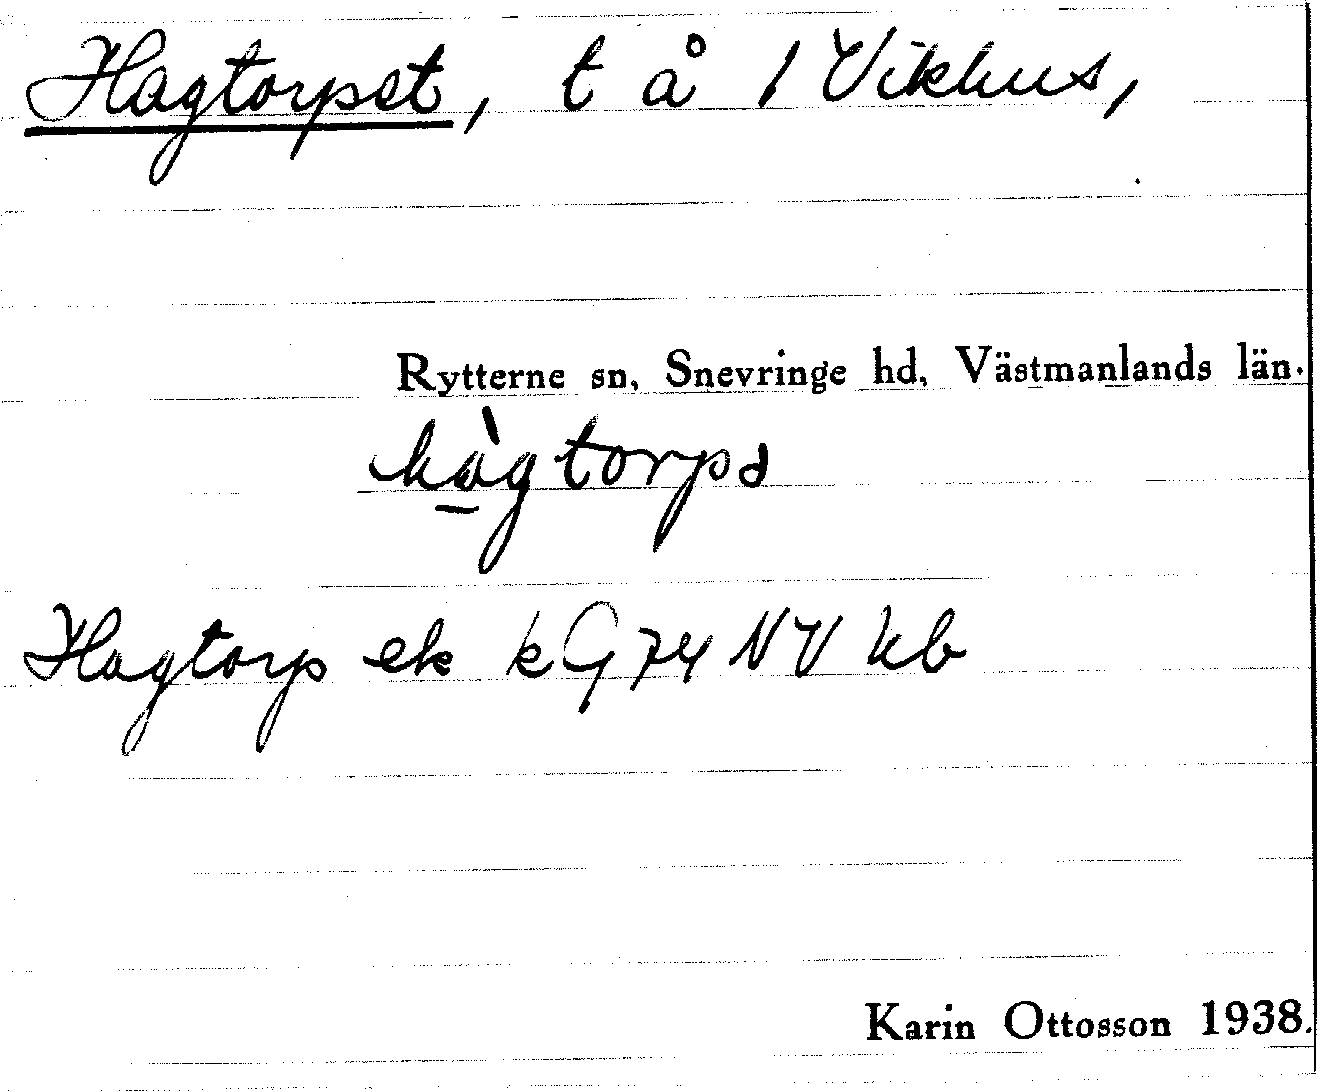 Hagtorpet, t å 1 Vikhus,
Rytterne sn, Snevringe hd, Västmanlands län.
hàgtorpə
Hagtorp ek kG 74 NV kb
Karin Ottosson 1938.